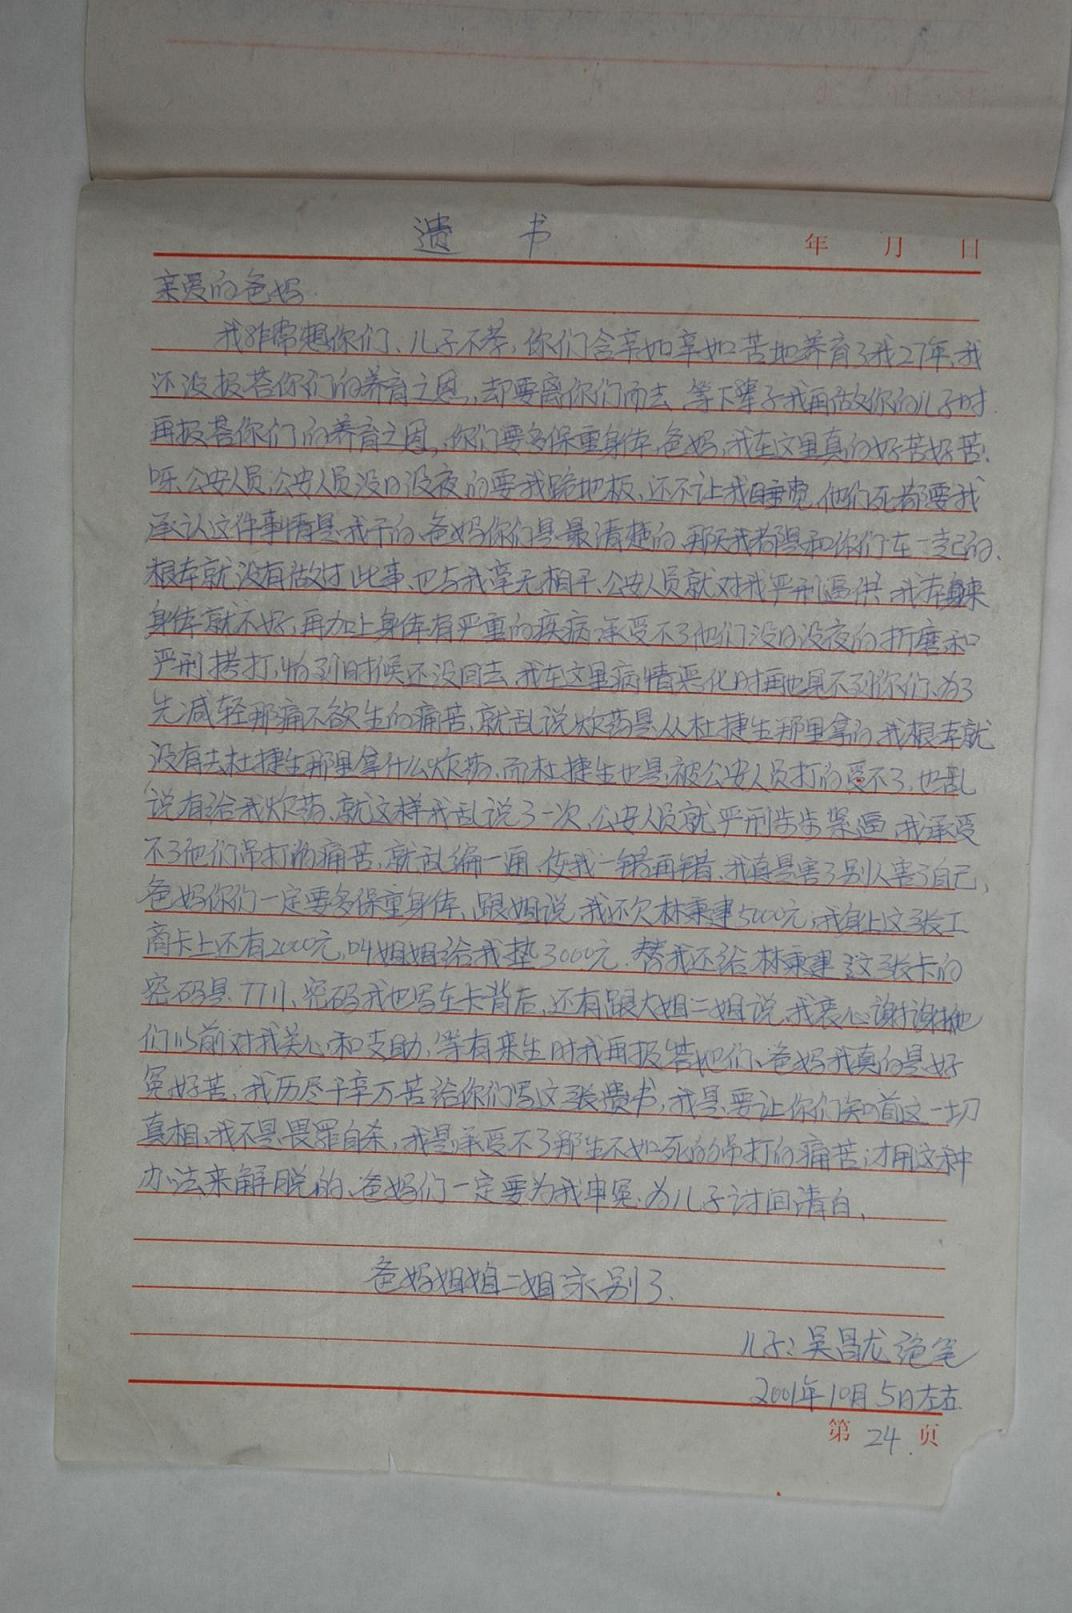 遗 书
年 月 日
亲爱的爸妈
我非常想你们、儿子不孝，你们含辛如辛如苦地养育了我27年，我
还没报答你们的养育之恩，却要离你们而去，等下辈子我再做你的儿子时
再报答你们的养育之恩，你们要多保重身体，爸妈，我在这里真的好苦好苦！
公安人员公安人员没日没夜的要我跪地板，还不让我睡觉，他们死都要我
承认这件事情是我干的，爸妈你们是最清楚的，那天我都是和你们在一起的、
根本就没有做过此事，也与我毫无相干、公安人员就对我严刑逼供，我本来
身体就不好，再加上身体有严重的疾病，承受不了他们没日没夜的折磨和
严刑拷打，怕到时候还没回去，我在这里病情恶化时再也见不到你们、为了
先减轻那痛不欲生的痛苦，就乱说炸药是从杜捷生那里拿的，我根本就
没有去杜捷生那里拿什么炸药，而杜捷生也是被公安人员打的受不了，也乱
说有给我炸药，就这样我乱说了一次，公安人员就严刑步步紧逼，我承受
不了他们吊打的痛苦，就乱编一通，使我一错再错，我真是害了别人害了自己，
爸妈你们一定要多保重身体，跟姐说，我还欠林秉建5000元，我身上这张工
商卡上还有2000元，叫姐姐给我垫3000元，替我还给林秉建，这张卡的
密码是7711、密码我也写在卡背后，还有跟大姐二姐说，我衷心谢谢她
们以前对我关心和支助，等有来生时我再报答她们、爸妈我真的是好
冤好苦，我历尽千辛万苦给你们写这张遗书，我是要让你们知道这一切
真相，我不是畏罪自杀，我是承受不了那生不如死的吊打的痛苦，才用这种
办法来解脱的、爸妈们一定要为我申冤，为儿子讨回清白，
爸妈姐姐二姐永别了
儿子：吴昌龙绝笔
2001年10月5日左右
第 24 页